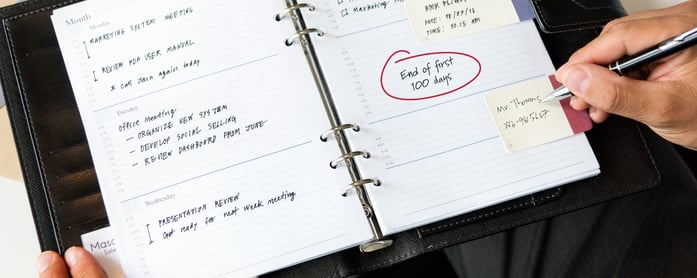 Month
Monday
MARKETING SYSTEM MEETING
REVIEW PDA USER MANUAL
* call Jain again today
Tuesday
Office Meeting:
- ORGANIZE NEW SYSTEM
- DEVELOP SOCIAL SELLING
- REVIEW DASHBOARD FROM JUNE
Wednesday
PRESENTATION REVIEW
Get ready for next week meeting
Marketing
DATE:
TIME:
End of first
100 days
Mr. Thomas